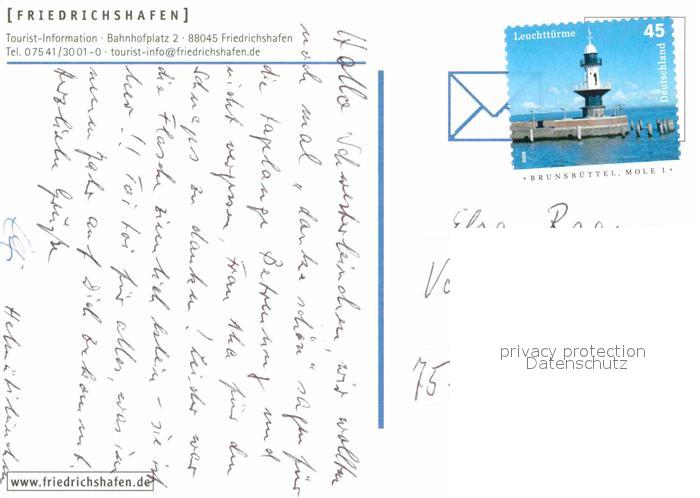 [FRIEDRICHSHAFEN]
Tourist-Information · Bahnhofplatz 2 · 88045 Friedrichshafen
Tel. 07541/3001-0 · tourist-info@friedrichshafen.de
Hallo Schwesterleinchen, wir wollten
noch mal "danke schön" sagen für
die tagelange Betreuung und
nicht vergessen, Frau für den
Schnaps zu danken! Leider war
die Flasche ziemlich klein - sie ist
leer!! Toi toi für alles, was im
neuen Jahr auf Dich zukommt.
Herzliche Grüße
www.friedrichshafen.de
Leuchttürme
45
Deutschland
· BRUNSBÜTTEL, MOLE 1 ·
75
privacy protection
Datenschutz